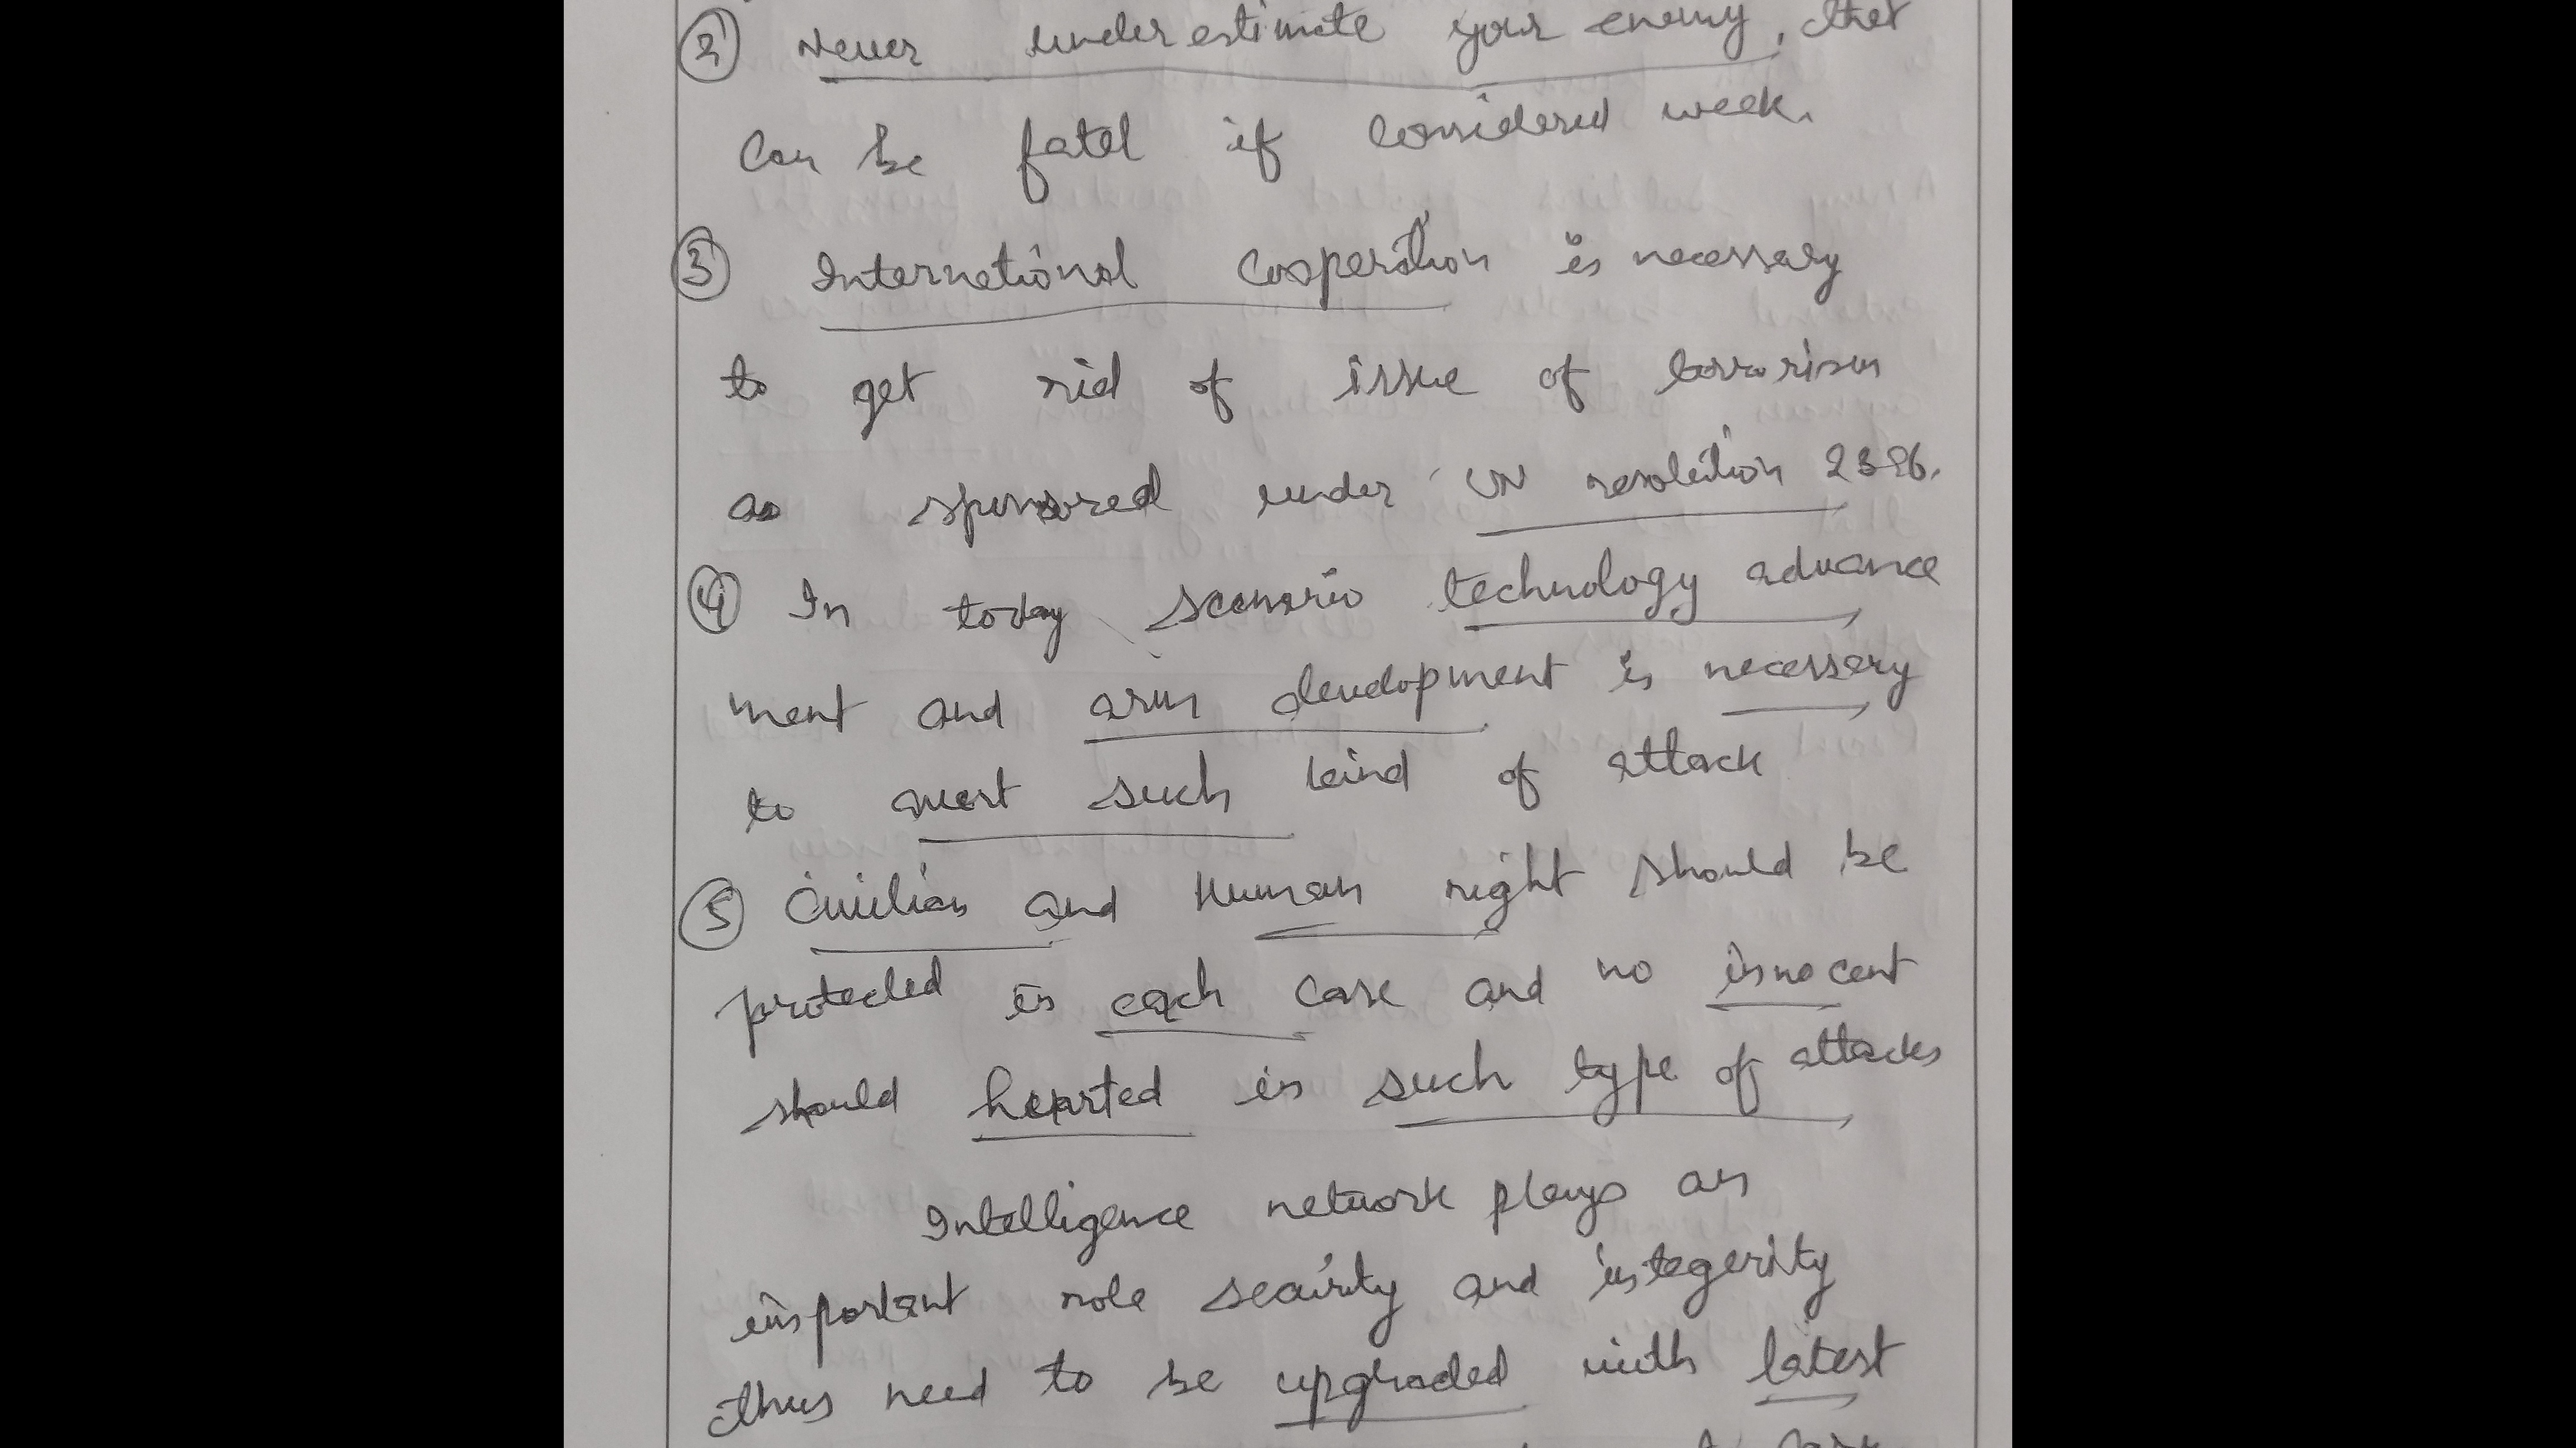 ② Never underestimate your enemy, that
Can be fatal if considered week.
③ International Cooperation is necessary
to get rid of issue of terrorism
as sponsored under UN resolution 2396.
④ In today scenario technology advance
ment and arm development is necessary
to avert such kind of attack
⑤ Civilian and Human right should be
protected in each case and no innocent
should hearted in such type of attacks
Intelligence network plays an
important role security and integerity
thus need to be upgraded with latest